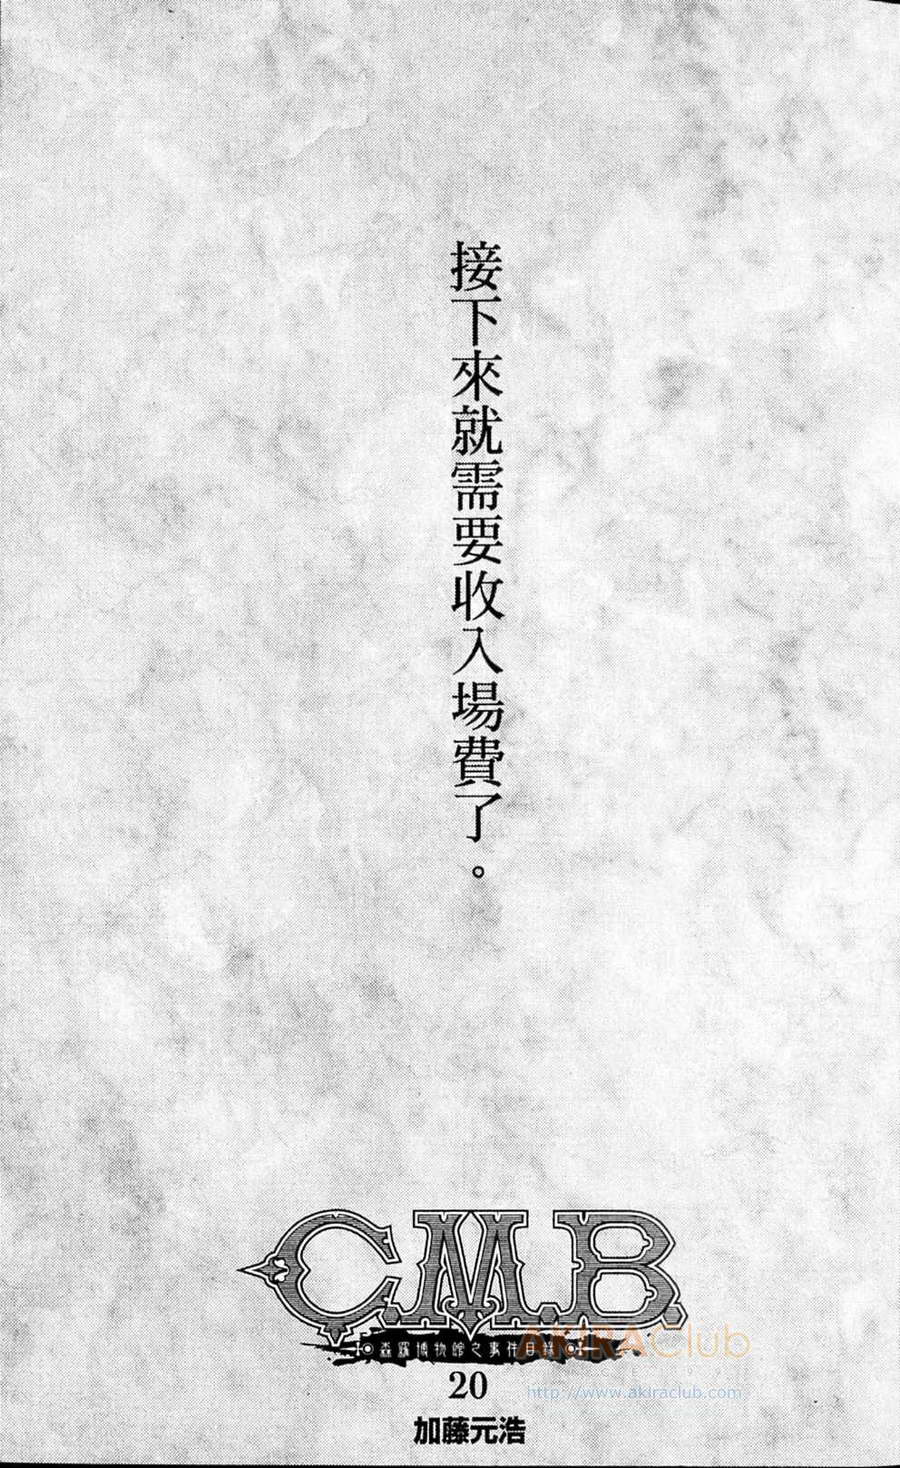 接下來就需要收入場費了。
C.M.B.
森羅博物館之事件目錄
20
加藤元浩
AKIRAClub
http://www.akiraclub.com